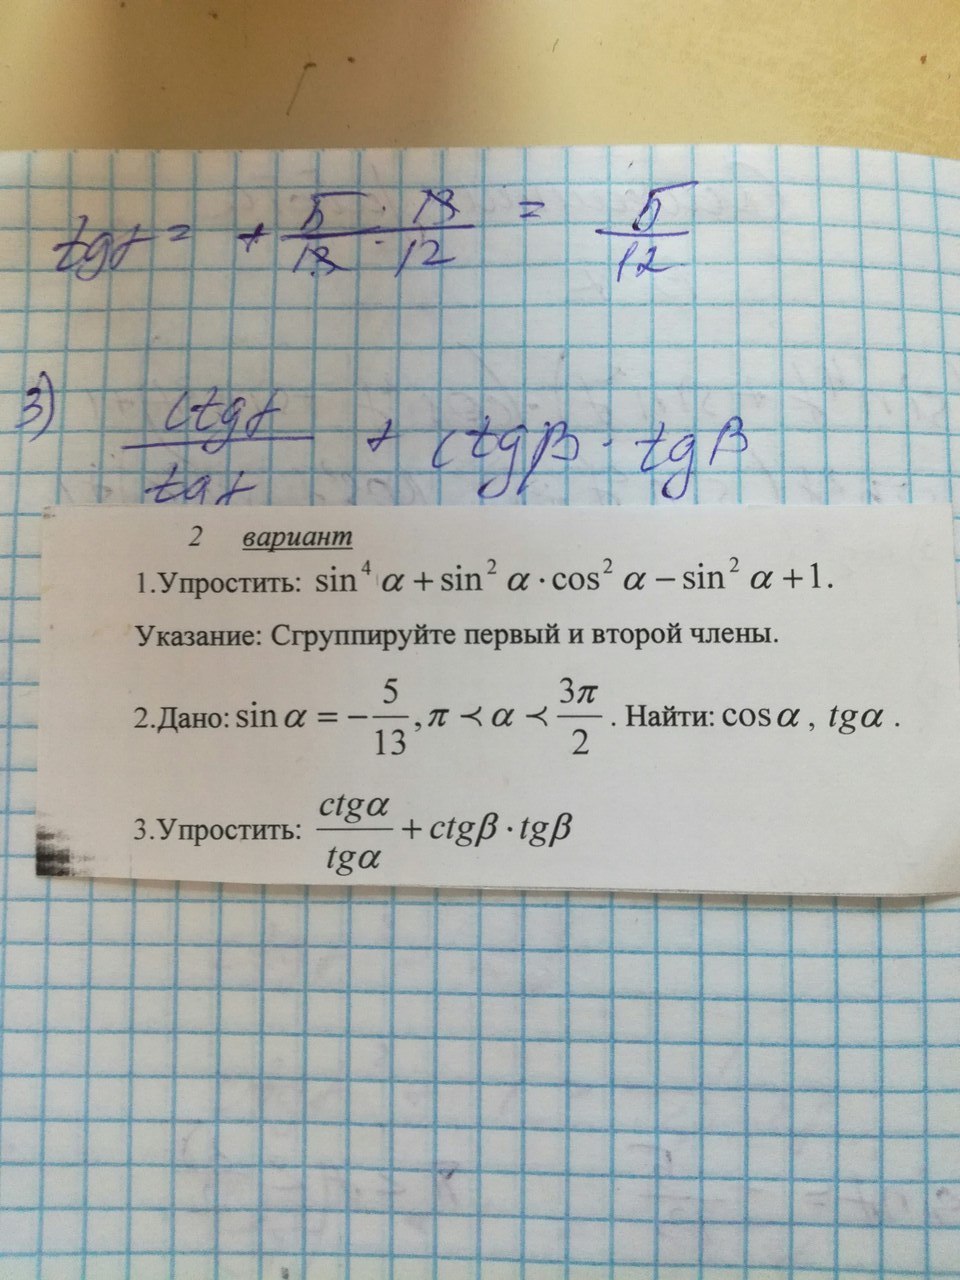 tgα = + 5 · 13 / 13 · 12 = 5/12
3) ctgα/tgα + ctgβ · tgβ
2 вариант
1.Упростить: sin⁴ α + sin² α · cos² α − sin² α + 1.
Указание: Сгруппируйте первый и второй члены.
2.Дано: sin α = −5/13, π ≺ α ≺ 3π/2. Найти: cos α, tgα.
3.Упростить: ctgα/tgα + ctgβ · tgβ